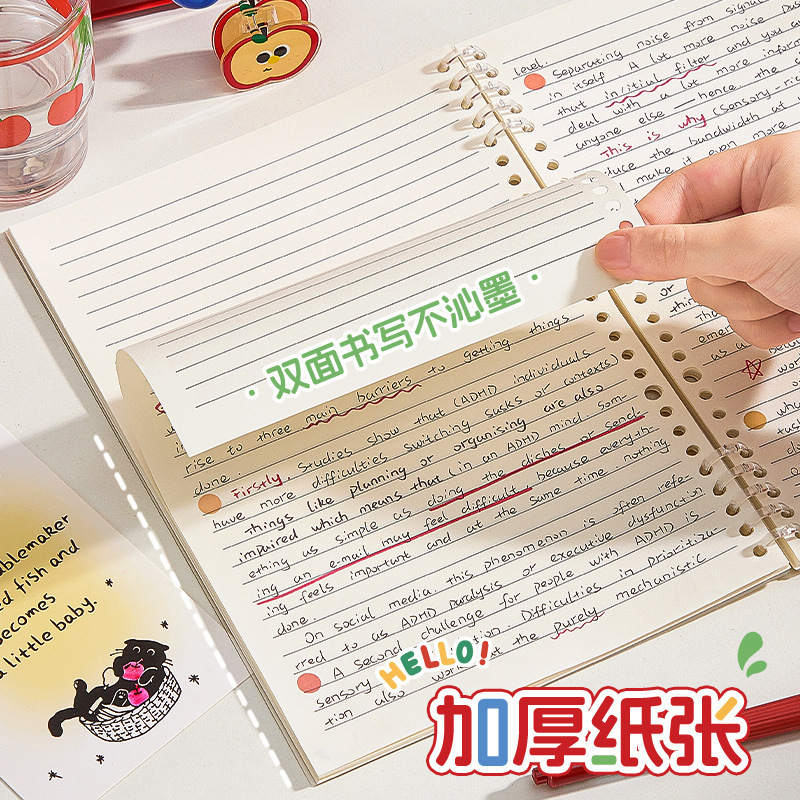 level.
Separating noise from signal
in itself A lot more noise pas
that initial filter and you are
deal with a lot more inform
anyone else — hence the
This is why (sensory-
duce the bandwidth at
make it even more
双面书写不沁墨
to getting things
rise to three main barriers
done. Firstly, studies show that (ADHD individuals
have more difficulties switching tasks or contexts)
Things like planning or organising are also
impaired which means that (in an ADHD mind som-
ething as simple as doing the dishes or send-
ing an e-mail may feel difficult, because everyth-
ing feels important and at the same time nothing
done.
On social media this phenomenon is often refe-
rred to as ADHD paralysis or executive dysfunction
A second challenge for people with ADHD is
sensory Difficulties in prioritizi
tion also the purely mechanistic
or
thin
Tha
emer
as
wha
ublemaker
ed fish and
becomes
a little baby.
HELLO!
加厚纸张